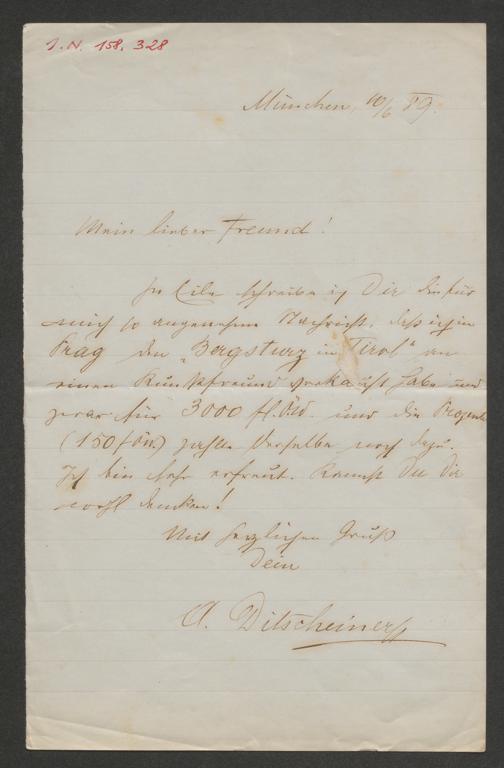 I.N. 158.328
München, 10/6 89.
Mein lieber Freund!
In Eile schreibe ich Dir die für
mich so angenehme Nachricht, daß ich in
Prag den „Bergsturz in Tirol" an
einen Kunstfreund verkauft habe und
zwar für 3000 fl. öW. und die Prozente
(150 f öW.) zahlte derselbe noch dazu.
Ich bin sehr erfreut. Kannst Du Dir
wohl denken!
Mit herzlichen Gruß
Dein
A. Ditscheiner